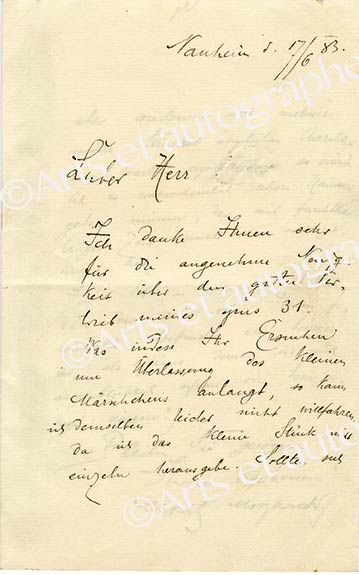 Nauheim d. 17/6 83.
Lieber Herr
Ich danke Ihnen sehr
für die angenehme Neuig
keit über den guten Ver-
trieb meines opus 31.
Was indess Ihr Ersuchen
um Überlassung des kleinen
Märschchens anlangt, so kann
ich demselben leider nicht willfahren,
da ich das kleine Stück nicht
einzeln herausgebe. Sollten
©Arts et autographes